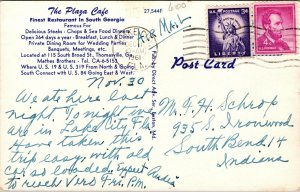 The Plaza Cafe
27,544F
Finest Restaurant In South Georgia
Famous For
Delicious Steaks - Chops & Sea Food Dinners
Open 364 days a year - Breakfast, Lunch & Dinner
Private Dining Room for Wedding Parties
Banquets, Meetings, etc.
Located at 115 South Broad St., Thomasville, Ga.
Mathes Brothers Tel. CA
Where U. S. 19 & U. S. 319 From North & South
Connect with U. S. 84 Going East & West.
Post Card
Nov. 30
We ate here last
night. Tonight we
are in Lake City Fla.
Have taken this
trip easy, with old
car so loaded. Expect
to reach Vero Fri. P.M.
M. G. H. Schrop
935 S. Ironwood
South Bend 14
Indiana